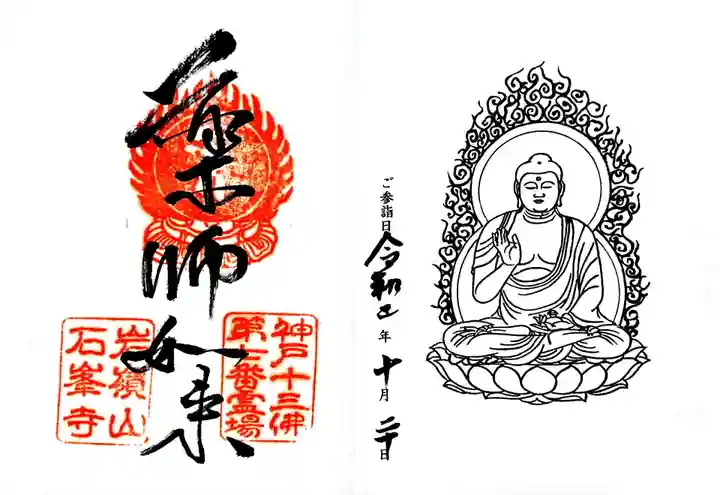 ご参詣日 令和五年 十月 二十日
薬師如来
神戸十三佛
第七番霊場
岩嶺山
石峯寺